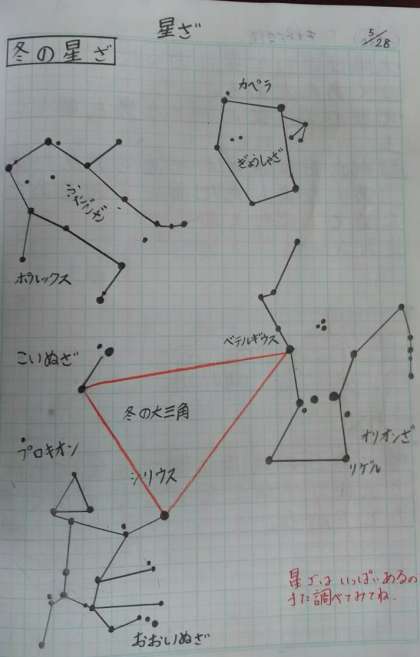 星ざ
5/28
冬の星ざ
カペラ
ぎょしゃざ
ふたござ
ポルックス
ベテルギウス
こいぬざ
冬の大三角
オリオンざ
プロキオン
リゲル
シリウス
おおいぬざ
星ざはいっぱいあるの
また調べてみてね。